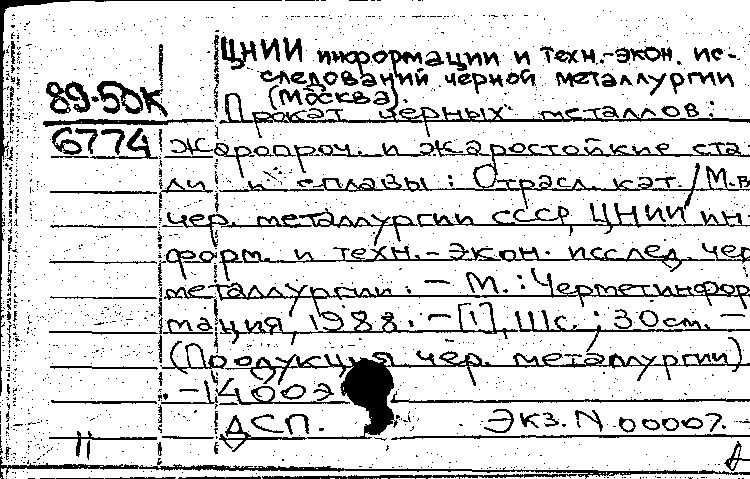 ЦНИИ информации и техн.-экон. ис-
следований черной металлургии
(Москва).
89-50К
Прокат черных металлов:
6774
жаропроч. и жаростойкие ста-
ли и сплавы: Отрасл. кат./М-в
чер. металлургии СССР, ЦНИИ ин-
форм. и техн.-экон. исслед. чер
металлургии. - М.: Черметинфор
мация, 1988. - [1], III с.; 30 см. -
(Продукция чер. металлургии)
. - 1400э
ДСП. Экз. N 00007. -
11